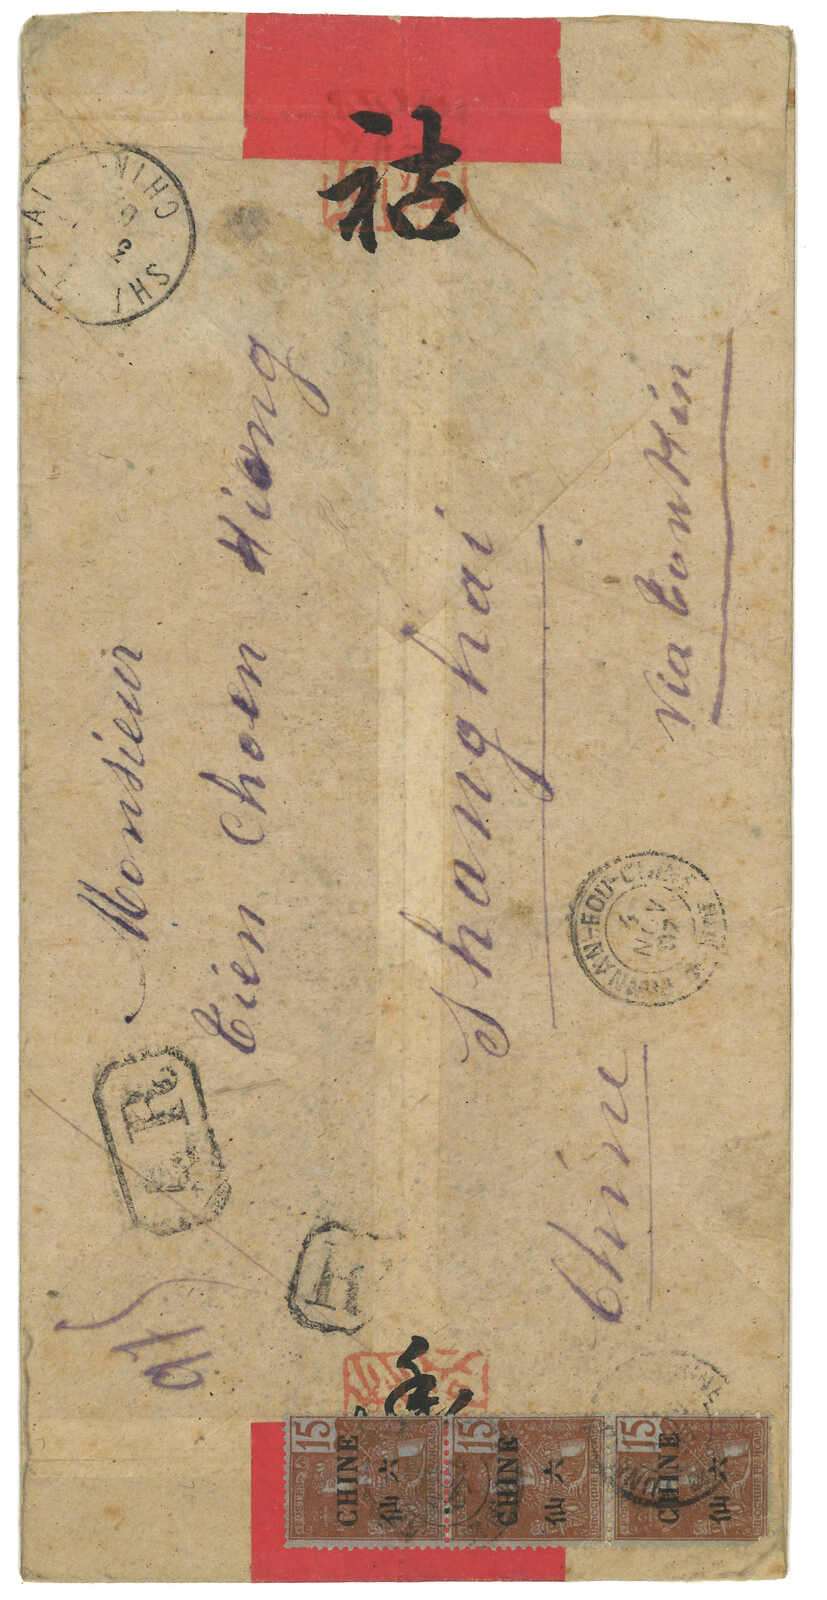 祜
SHANG-HAI
CHINE
Monsieur
Tien Choen Hiong
Shanghai
Chine
Via Tonkin
YUNNAN-FOU-CHINE
4
NOV
07
AR
R
15
CHINE
六
仙
15
CHINE
六
仙
15
CHINE
六
仙